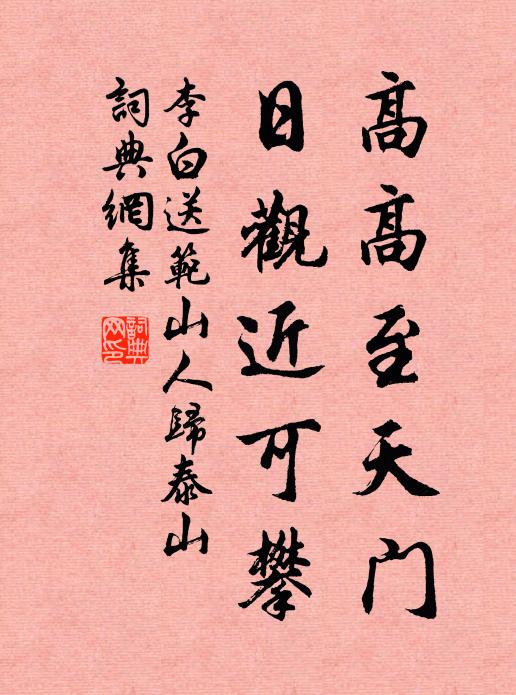 高高至天门
日觀近可攀
李白送範山人歸泰山
詞典網集
詞典网印